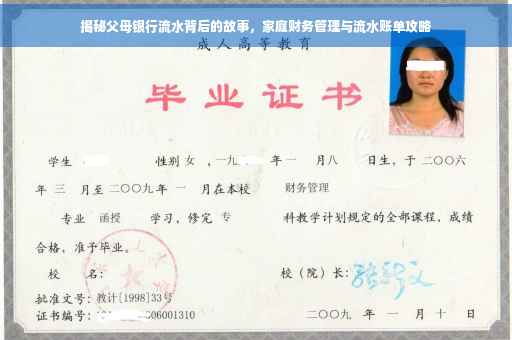 揭秘父母银行流水背后的故事，家庭财务管理与流水账单攻略
成人高等教育
毕业证书
学生 性别 女 ，一九 年 一 月八 日生，于 二〇〇六
年 三 月至 二〇〇九 年 一 月在本校 财务管理
专业 函授 学习，修完 专 科教学计划规定的全部课程，成绩
合格，准予毕业。
校 名： 校（院）长：
批准文号：教计[1998]33号
证书编号： 06001310 二〇〇九 年 一 月 十 日